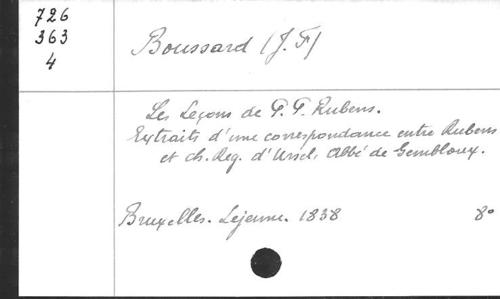 726
363
4
Boussard (J. F)
Les Leçons de P. P. Rubens.
Extraits d'une correspondance entre Rubens
et ch. Reg. d'Ursel, Abbé de Gembloux.
Bruxelles. Lejeune. 1838 8°